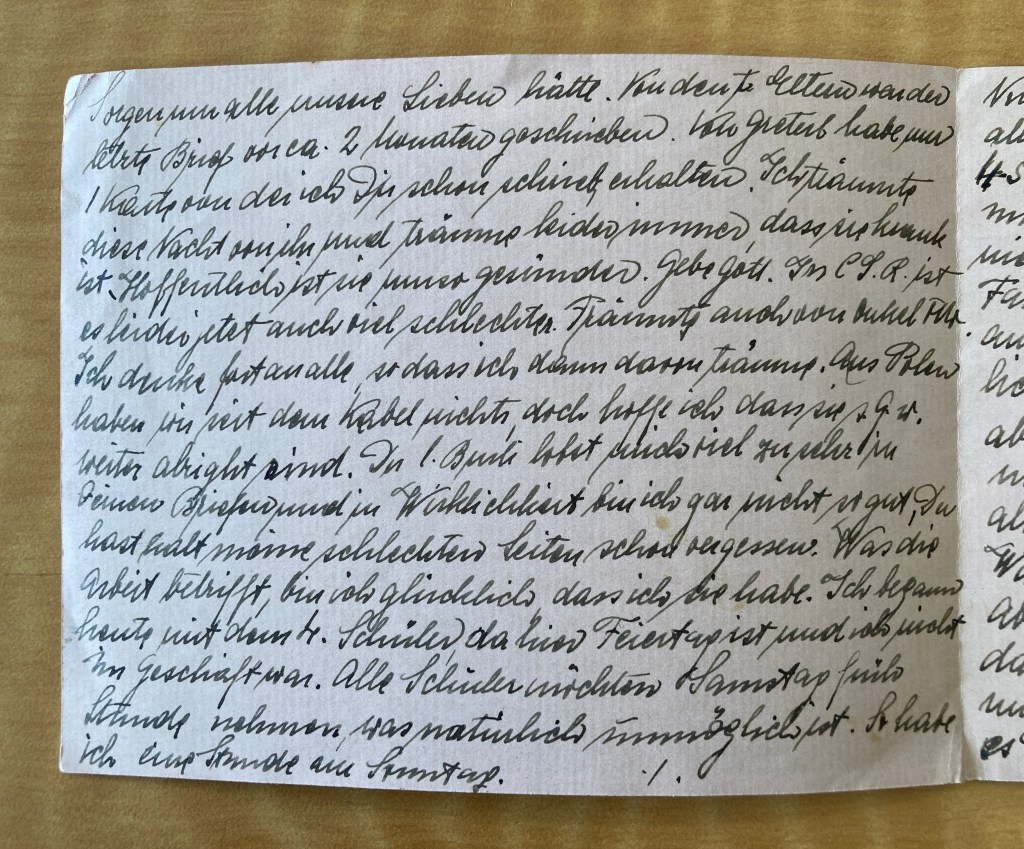 Sorgen um alle unsere Lieben hätte. Von den l. Eltern war der
letzte Brief vor ca. 2 Monaten geschrieben. Von Greterl habe nur
1 Karte von der ich Dir schon schrieb, erhalten. Ich träumte
diese Nacht von ihr und träume leider immer, dass sie krank
ist. Hoffentlich ist sie umso gesünder. Gebe Gott. In C.S.R. ist
es leider jetzt auch viel schlechter. Träumte auch von Onkel
Ich denke fort an alle, so dass ich dann davon träume. Aus Polen
haben wir seit dem Kabel nichts, doch hoffe ich dass sie s. G. w.
weiter alright sind. Du l. Burli lobst mich viel zu sehr in
Deinen Briefen und in Wirklichkeit bin ich gar nicht so gut, Du
hast halt meine schlechten Seiten schon vergessen. Was die
Arbeit betrifft, bin ich glücklich, dass ich sie habe. Ich begann
heute mit dem 4. Schüler, da hier Feiertag ist und ich nicht
im Geschäft war. Alle Schüler möchten Samstag früh
Stunde nehmen, was natürlich unmöglich ist. So habe
ich eine Stunde am Sonntag. ./.